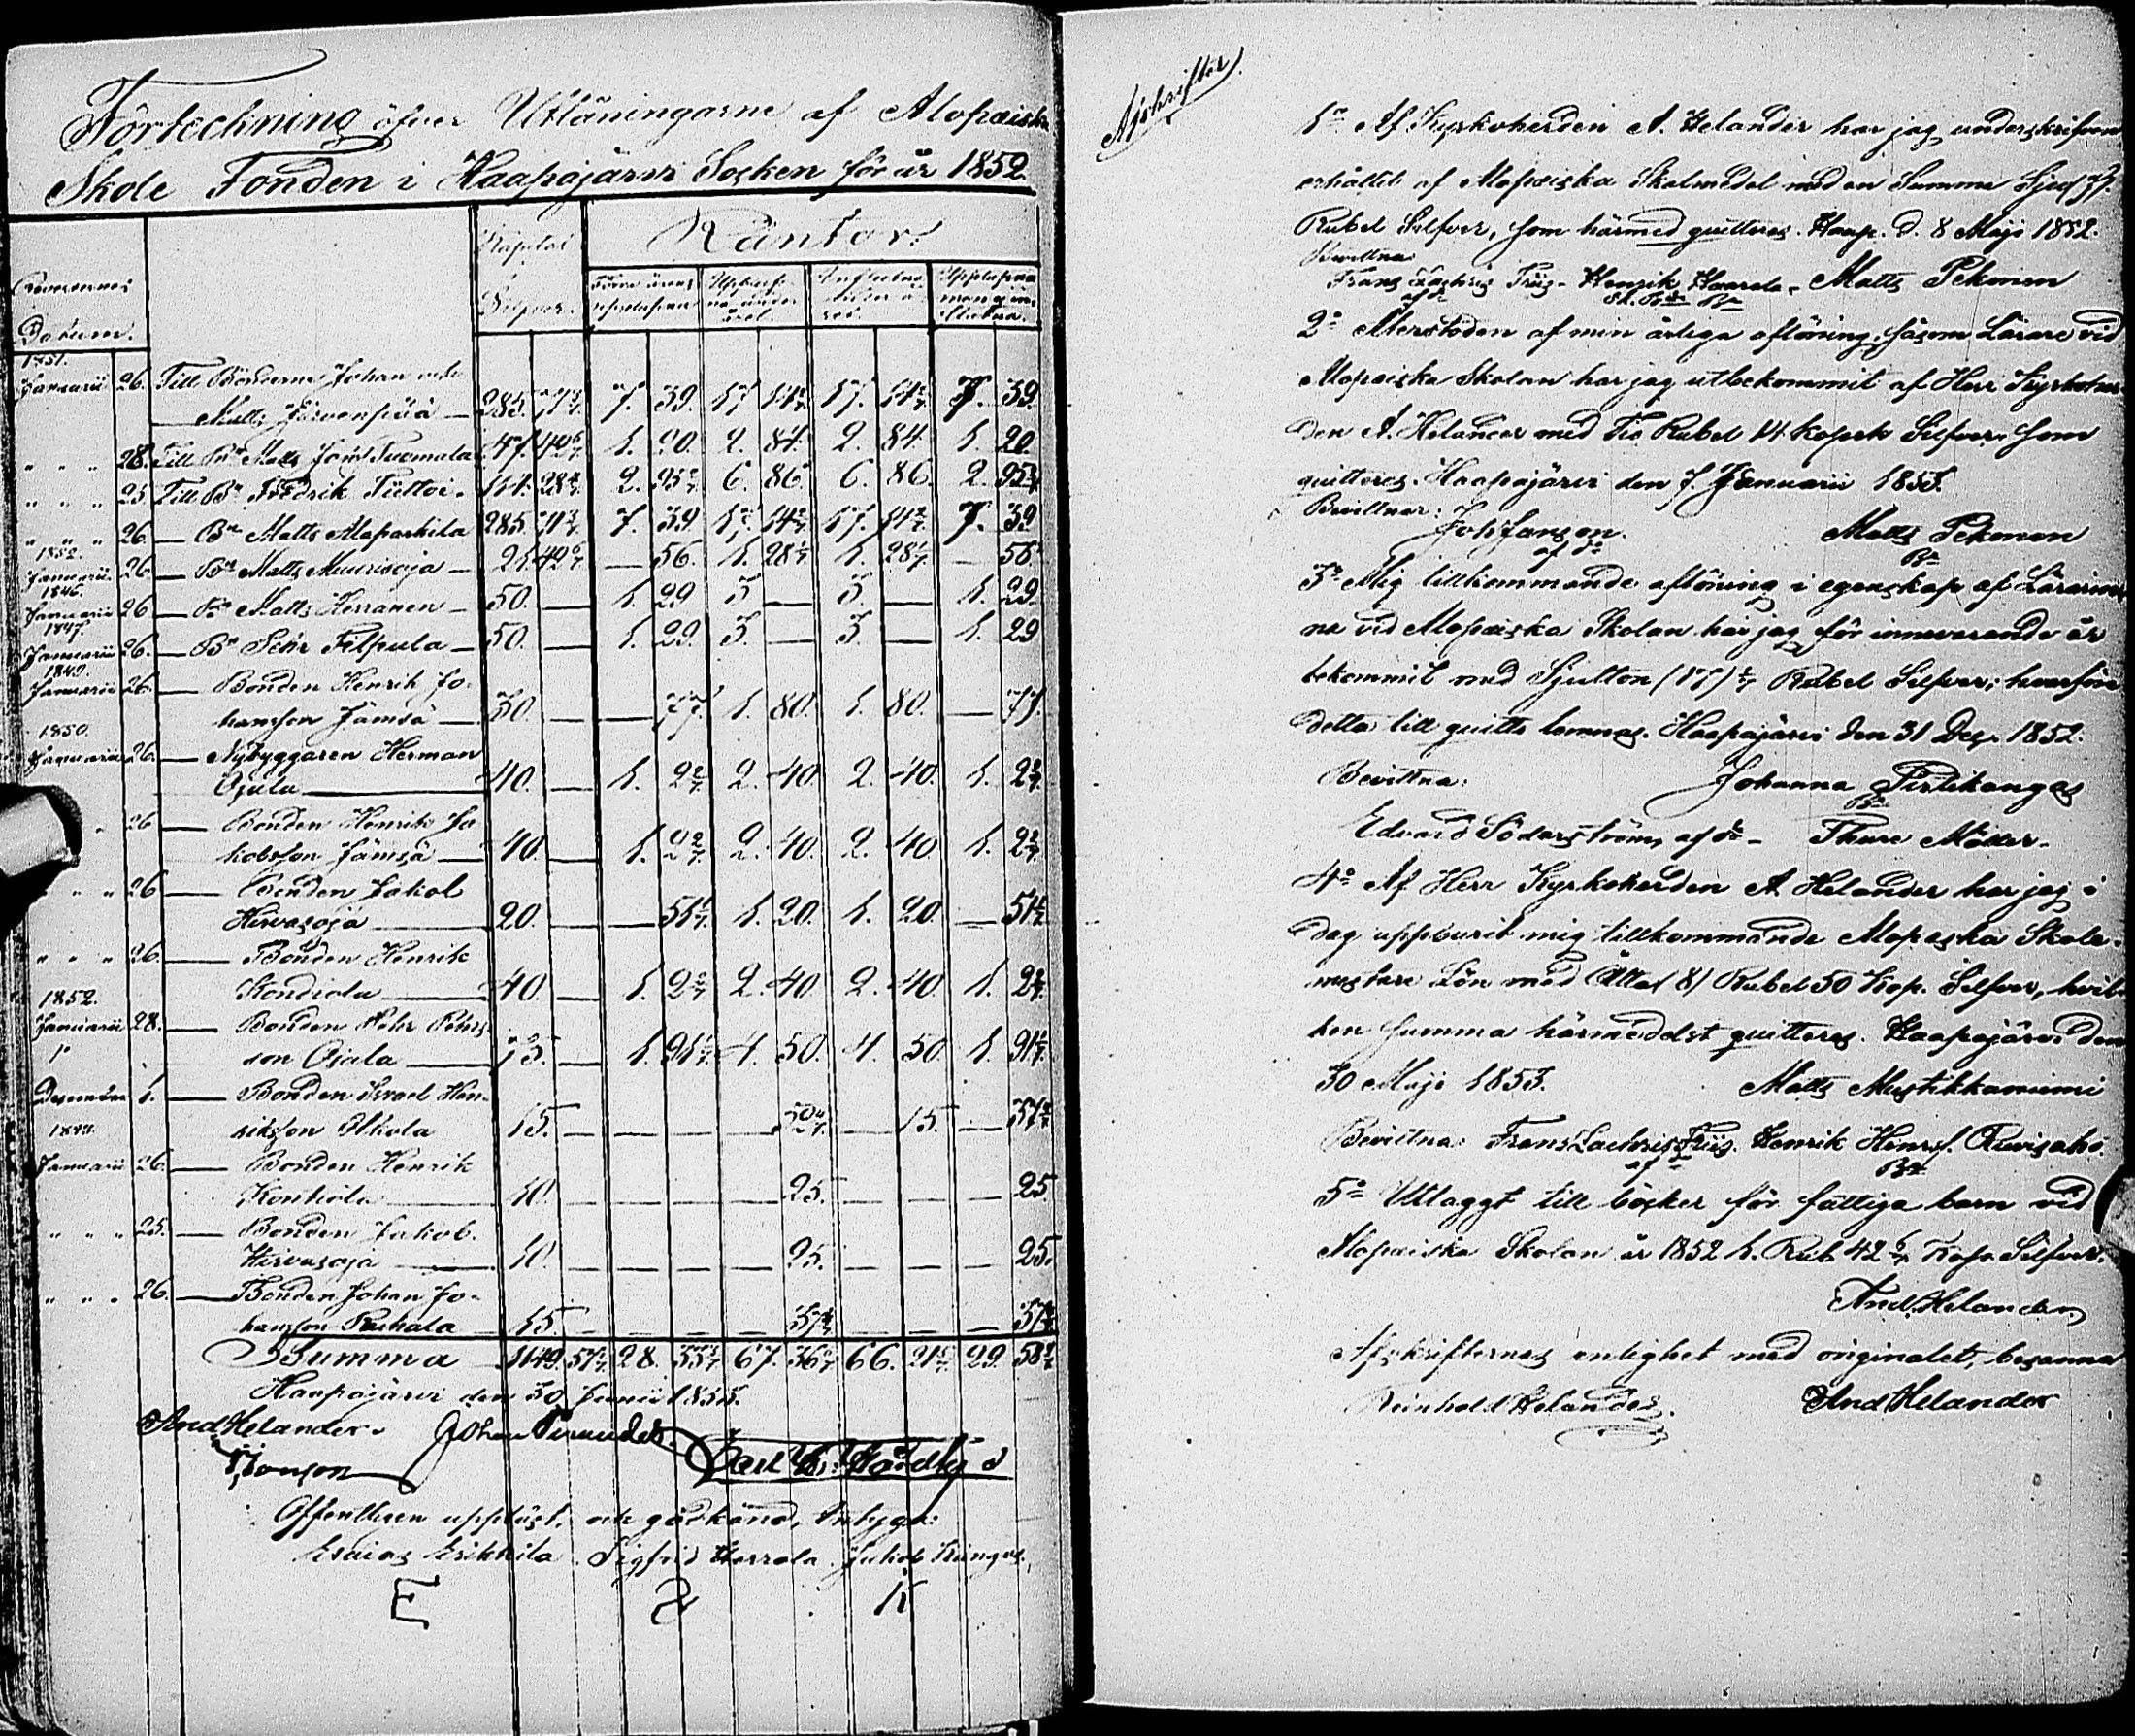 Förteckning öfver Utlåningarne af Alopæiska
Skole Fonden i Haapajärvi Socken för år 1852
Reversernes Datum. Kapital Silfver. Räntor.
Förra årens upplupna Upplup- na under året. Influtna under å- ret. Upplupna men ej in- flutna.
1851.
Januarii 26. Till Bönderne Johan och
Matts Järvenpää 285. 71 3/7 7. 39. 17 14 2/7 17. 14 2/7 7. 39.
" " " 28. Till Bn Matts Tuomala 47. 42 6/7 1. 20. 2. 84. 2. 84 1. 20.
" " " 25 Till Bn Fredrik Tüttoi 114. 28 4/7 2. 95 6. 86. 6. 86. 2. 95
" " " 26. Bn Matts Alaparkila 285. 71 3/7 7. 39 17. 14 2/7 17. 14 2/7 7. 39
1852.
Januarii 26. Bn Matts Muurisoja 21 42 6/7 — 56. 1. 28 4/7 1. 28 4/7 — 56
1846.
Januarii 26 Bn Matts Herranen 50. — 1. 29 3 — 3. — 1. 29.
1847.
Januarii 26. Bn Pehr Filpula 50. — 1. 29. 3. — 3 — 1. 29
1849.
Januarii 26. Bonden Henrik Jo-
hansson Jämsä 30. — — 77. 1. 80. 1. 80. — 77.
1850.
Januarii 26. Nybyggaren Herman
Ojala 40. — 1. 2 2/7 2. 40. 2. 40. 1. 2 2/7
" 26 Bonden Henrik Ja-
kobsson Jämsä 40. — 1. 2 2/7 2. 40. 2. 40 1. 2 2/7
" " " 26 Bonden Jakob
Hirvasoja 20. — — 51 1/7 1. 20. 1. 20. — 51 1/7
" " " 26. Bonden Henrik
Kondiola 40. — 1. 2 2/7 2. 40 2. 40 1. 2 2/7
1852.
Januarii 28. Bonden Pehr Pehrs-
son Ojala 75. — 1. 91 1/7 4. 50. 4. 50 1. 91 1/7
December 1. Bonden Israel Hen-
riksson Olkola 15. — — — — — 15. —
Januarii 26. Bonden Henrik
Konhiola 10. — — — — 25. — — — 25
" " " 25. Bonden Jakob
Hirvasoja 10. — — — — 25. — — — 25.
" " " 26. Bonden Johan Jo-
hansson Rachala 15. — — — — 37 — — — 37
Summa 1149. 57 1/7 28. 67. 66. 29. 58
Haapajärvi den 30 Junii 1853.
And Helander. Johan
Offentligen uppläst, och godkänd, intyga:
Esaias Erikkila. Sigfrid Harrola. Jakob Kangas.
E K
Afskrifter.
1o Af Kyrkoherden A. Helander har jag underskrifven
erhållit af Alopæiska Skolmedel med en Summa Sju (7)
Rubel Silfver, som härmed quitteras. Haap. d. 8 Maji 1852.
Bevittna:
Frans Lachris Friis - Henrik Haarala - Matts Pekonen
2o Återstoden af min årliga aflöning, såsom Lärare vid
Alopæiska Skolan har jag utbekommit af Herr Kyrkoher-
den A. Helander med Tio Rubel 14 Kopek Silfver, som
quitteras. Haapajärvi den 7. Januarii 1853.
Bevittnar:
Joh Janson. Matts Pekonen
af do Bn
3o Mig tillkommande aflöning i egenskap af Lärarin-
na vid Alopæiska Skolan har jag för innevarande år
bekommit med Sjutton (17) 1/7 Rubel Silfver; hvarföre
detta till quitto lemnas. Haapajärvi den 31 Dec. 1852.
Bevittna: Johanna Pirttikangas
Edvard Söderström, af do - Thure Möller.
4o Af Herr Kyrkoherden A. Helander har jag i
dag uppburit mig tillkommande Alopæska Skole-
mestare Lön med Åtta (8) Rubel 50 Kop. Silfver, hvil-
ken summa härmeddelst quitteras. Haapajärvi den
30 Maji 1853. Matts Mustikkaniemi
Bevittna: Frans Lachris Friis. Henrik Henrs. Ruvisaho.
5o Utlaggt till böcker för fattiga barn vid
Alopæiska Skolan år 1852 1. Rub. 42 6/7 Kop. Silfver.
And. Helander
Afskrifternas enlighet med originalet, besanna
Reinhold Helander. And Helander